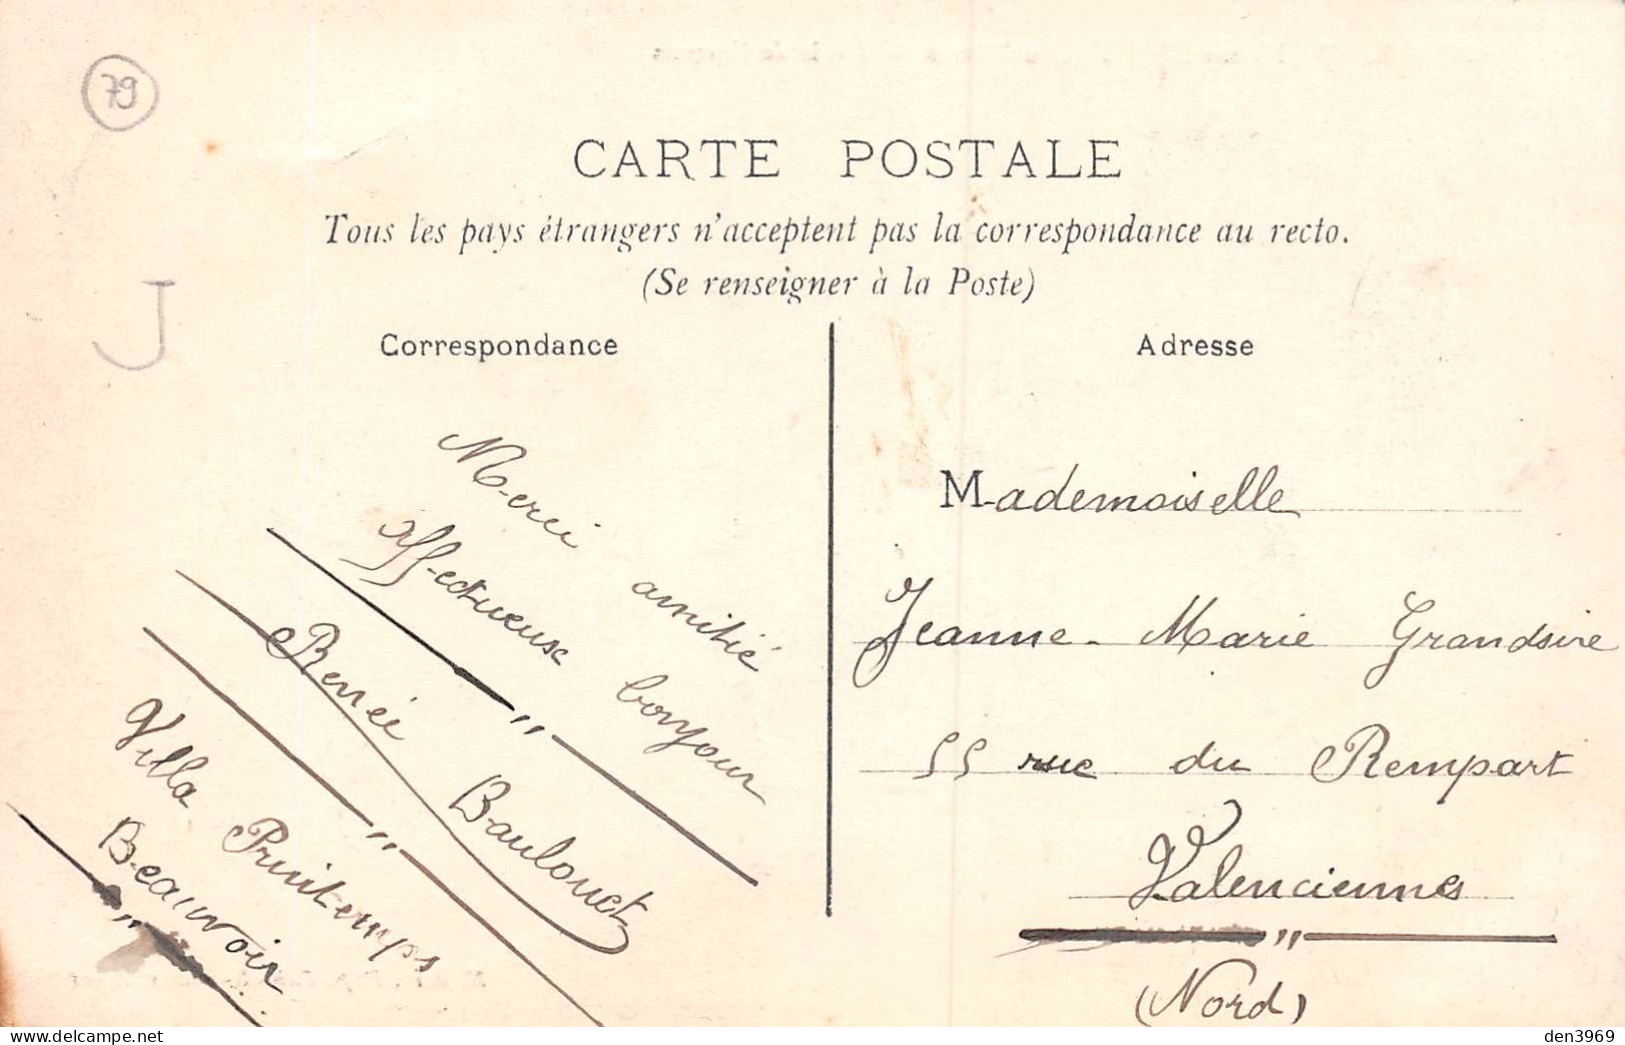 79
CARTE POSTALE
Tous les pays étrangers n'acceptent pas la correspondance au recto.
(Se renseigner à la Poste)
J
Correspondance
Merci amitié
affectueuse bonjour
"
Renée Baulouet
"
Villa Printemps
Beauvoir
"
Adresse
Mademoiselle
Jeanne-Marie Grandsire
55 rue du Rempart
Valenciennes
"
(Nord)
den3969